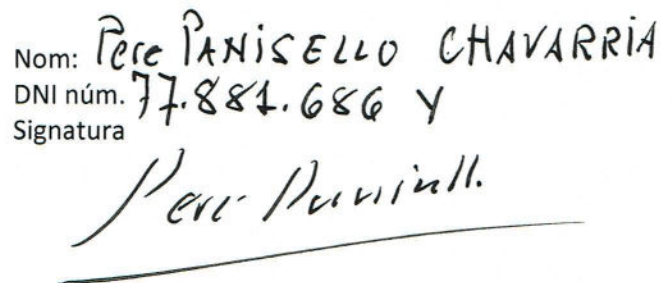 Nom: Pere PANISELLO CHAVARRIA
DNI núm. 77.881.686 Y
Signatura
Pere Panisell.